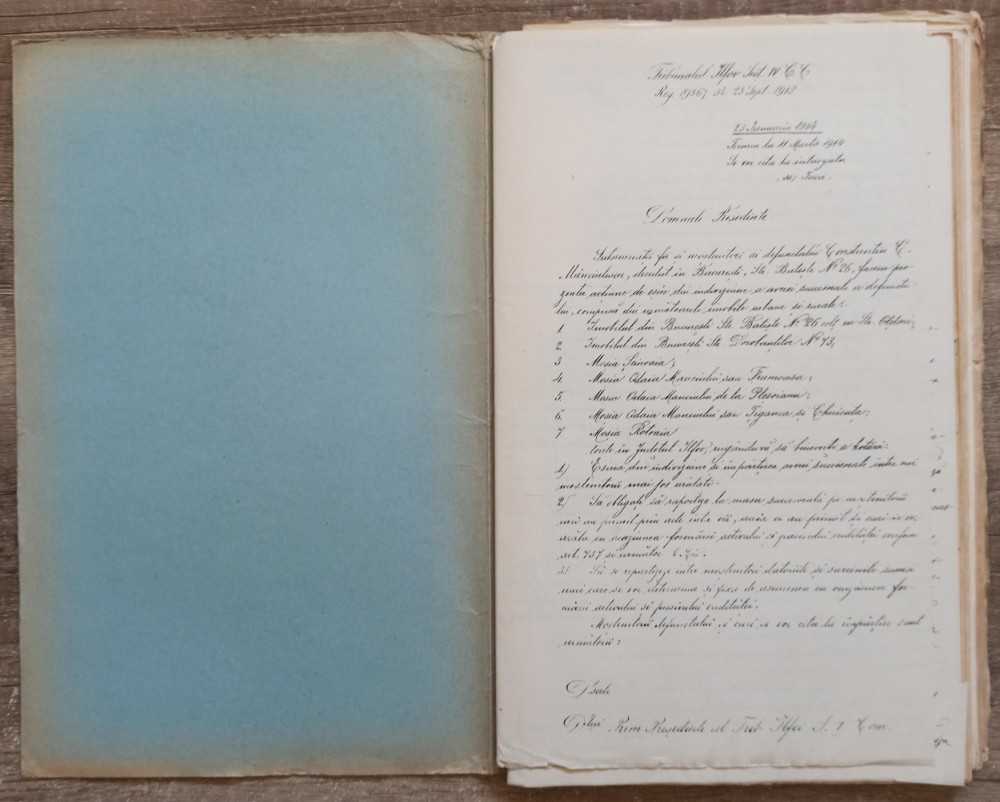 Tribunalul Ilfov Sect IV C. C
Reg 19867 de 23 Sept. 1913
23 Ianuarie 1914
Termen la 11 Martie 1914
Se vor cita la
Domnule Presedinte
Subsemnatii fii si mostenitori ai defunctului Constantin C.
Mănciulescu, decedat in Bucuresti, Str. Batiste No 26, facem pre-
zenta actiune de esire din indiviziune a averei succesorale a defunctu-
lui, compusă din următoarele imobile urbane si rurale:
1 Imobilul din Bucuresti Str. Batiste No 26 colt cu Str.
2. Imobilul din Bucuresti Str. Dorobantilor No 73;
3 Mosia
4. Mosia Odaia Manciului sau Frumoasa;
5. Mosia Odaia Manciului de la Plesoianu;
6. Mosia Odaia Manciului sau Tiganca si Chiricuta;
7 Mosia
toate in Judetul Ilfov, rugându-vă să binevoiti a hotărî:
1) Esirea din indiviziune si impărtirea averei succesorale intre noi
mostenitorii mai jos arătati.
2) Să obligati să raporteze la masa succesorală pe mostenitorii
cari au primit prin acte intre vii, ceeace au primit si ceeace se va
arăta cu ocaziunea formărei activului si pasivului ereditătei conform
art. 737 si următor C. Civ.
3) Să se repartizeze intre mostenitori datoriile si sarcinile succesi-
unei care se vor determina si fixa de asemenea cu ocaziunea for-
mărei activului si pasivului ereditătei.
Mostenitorii defunctului si cari se vor cita la impărtire sunt
următorii:
D-sale
D-lui Prim Presedinte al Trib. Ilfov S. I Com.